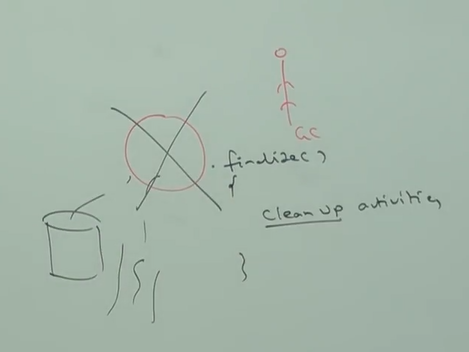 GC
.finalize()
{
Clean up activities
}